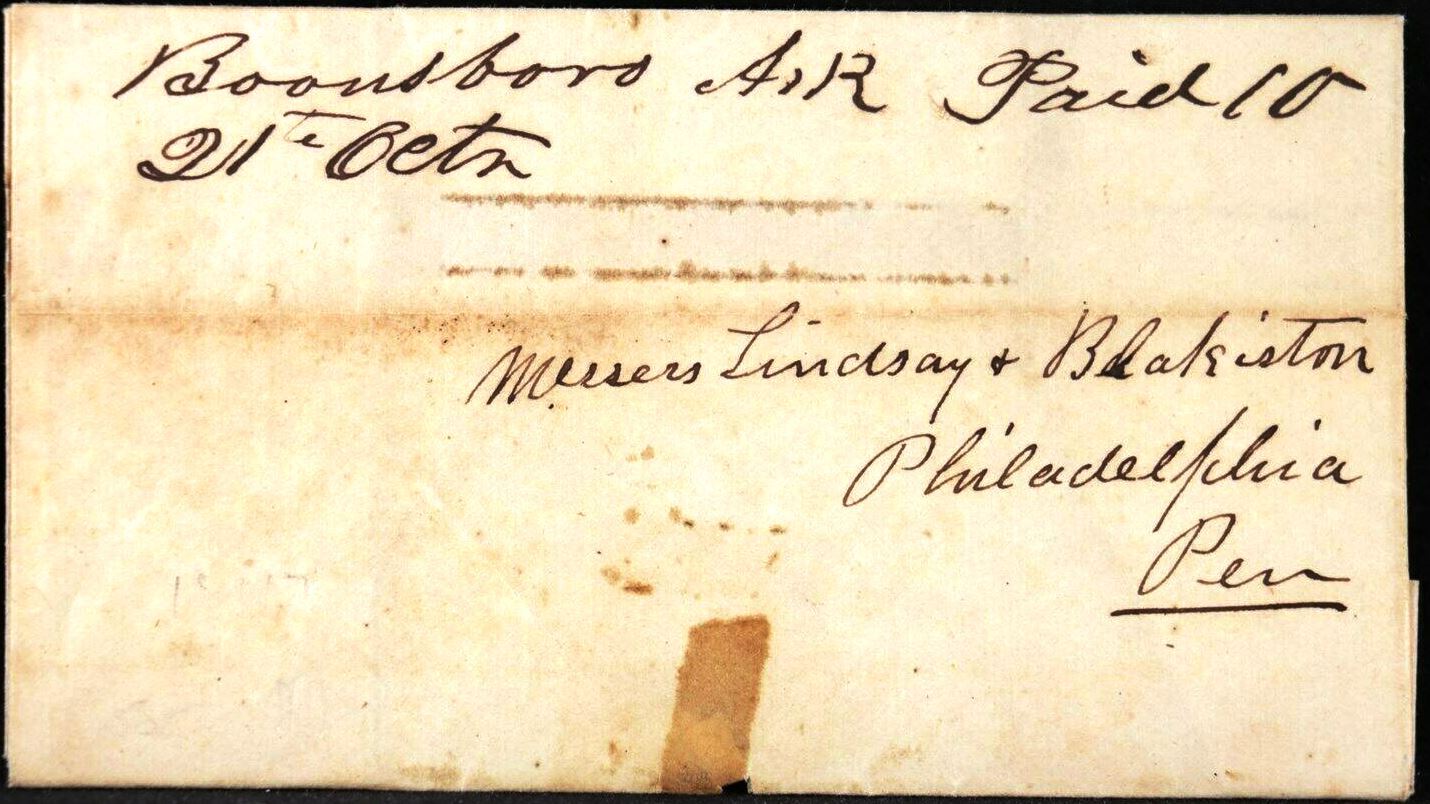 Boonsboro Ark Paid 10
21te Octr
Messers Lindsay & Blakiston
Philadelphia
Pen